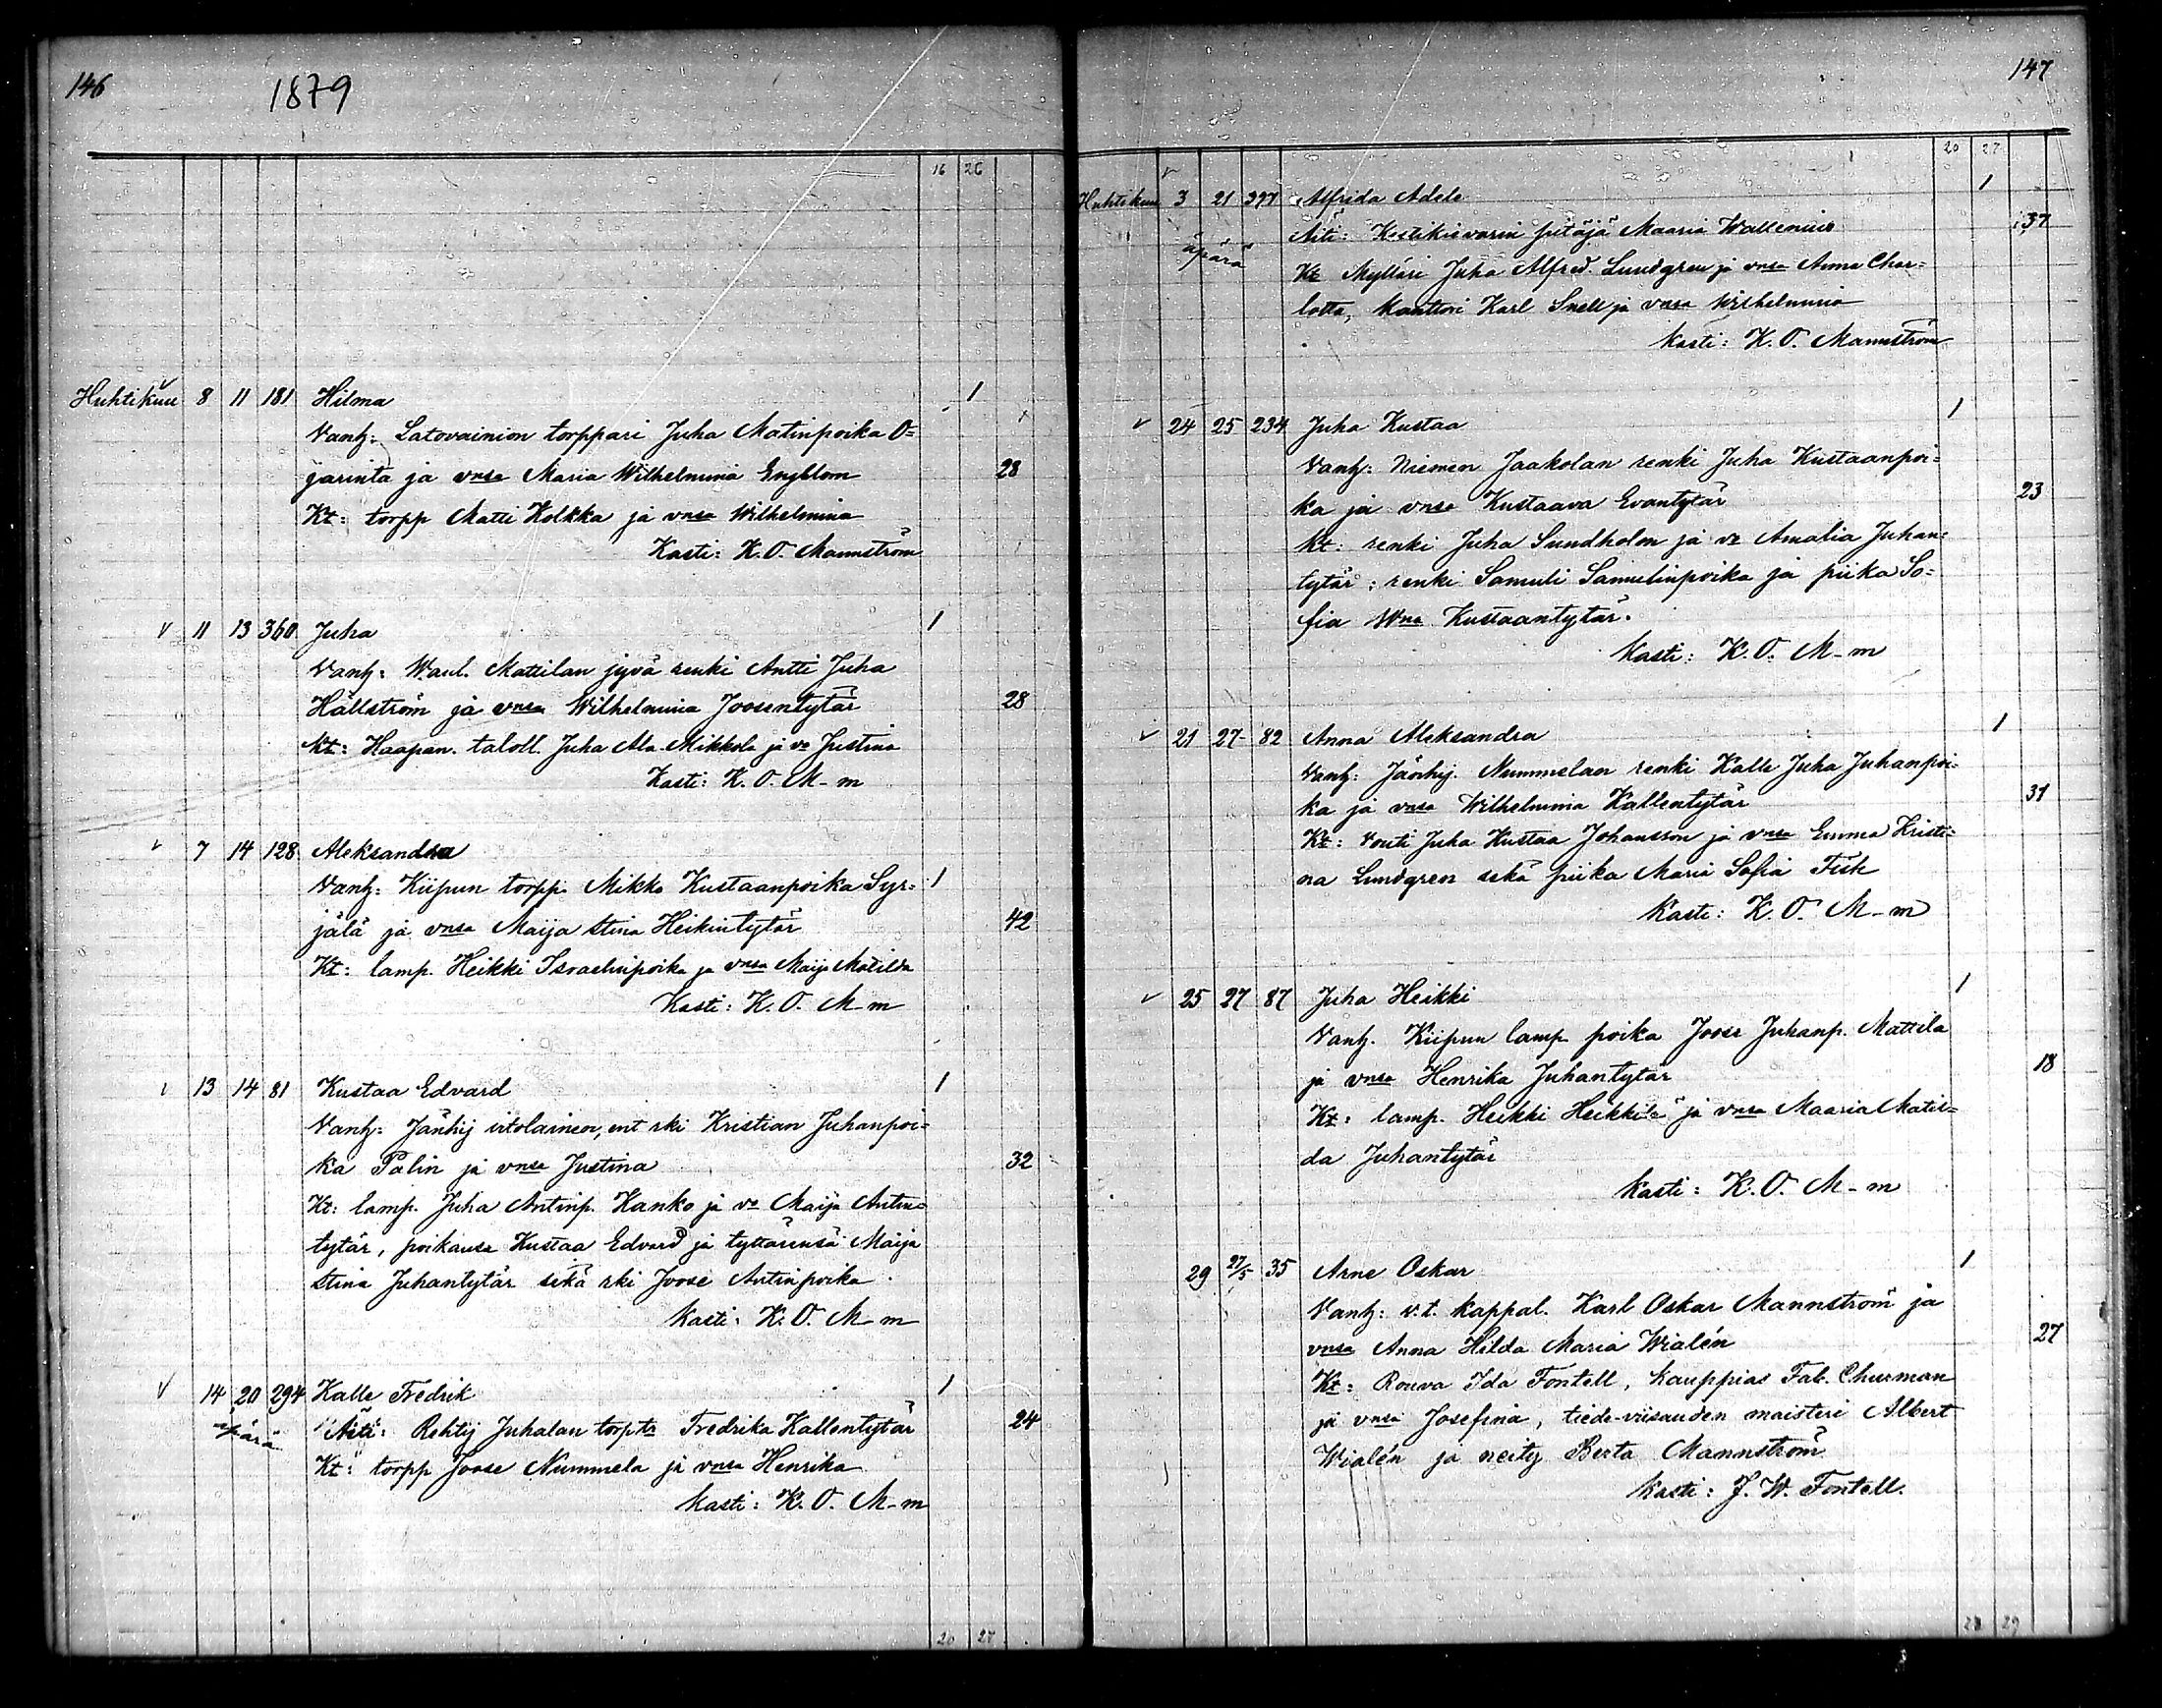 146
1879
16 26
Huhtikuu 8 11 181 Hilma 1
Vanh: Latovainion torppari Juha Matinpoika O=
jarinta ja vnsa Maria Wilhelmina Engblom 28
Kt: torpp Matti Kolkka ja vnsa Wilhelmina
Kasti: K. O. Mannström
11 13 360 Juha 1
Vanh: Maul. Mattilan jyvä renki Antti Juha
Hällström ja vnsa Wilhelmina Joosentytär 28
Kt: Haapan. taloll. Juha Ala-Mikkola ja vo Justina
Kasti: K. O. M-m
7 14 128 Aleksandra
Vanh: Kiipun torpp. Mikko Kustaanpoika Syr= 1
jälä ja vnsa Maija Stina Heikintytär 42
Kt: lamp. Heikki Israelinpoika ja vnsa Maija Matilda
Kasti: K. O. M-m
13 14 81 Kustaa Edvard 1
Vanh: Jänhij itolainen, ent rki Kristian Juhanpoi=
ka Palin ja vnsa Justina 32
Kt: lamp. Juha Antinp. Kanko ja vo Maija Antin=
tytär, poikansa Kustaa Edvard ja tyttärensä Maija
Stina Juhantytär sekä rki Joose Antinpoika
Kasti: K. O. M-m
14 20 294 Kalle Fredrik 1
äpärä Äiti: Rehtij Juhalan torp tr Fredrika Kallentytär 24
Kt: torpp Joose Nummela ja vnsa Henrika
Kasti: K. O. M-m
20 27
147
20 27
Huhtikuu 3 21 397 Alfrida Adele 1
Äiti: Kestikievarin pitäjä Maaria Wallenius 37
äpärä Kt Mylläri Juha Alfred Lundgren ja vnsa Anna Char=
lotta, Kanttori Karl Snell ja vnsa Wilhelmina
Kasti: K. O. Mannström
24 25 234 Juha Kustaa 1
Vanh: Niemen Jaakolan renki Juha Kustaanpoi=
ka ja vnsa Kustaava Evantytär 23
Kt: renki Juha Sundholm ja vo Amalia Juhan=
tytär; renki Samuli Samulinpoika ja piika So=
fia Wna Kustaantytär.
Kasti: K. O. M-m
21 27 82 Anna Aleksandra 1
Vanh: Jänhij. Nummelan renki Kalle Juha Juhanpoi=
ka ja vnsa Wilhelmina Kallentytär 31
Kt: Vouti Juha Kustaa Johansson ja vnsa Emma Kristi=
na Lundgren sekä piika Maria Sofia Fisk
Kasti: K. O. M-m
25 27 87 Juha Heikki 1
Vanh. Kiipun lamp poika Joose Juhanp. Mattila
ja vnsa Henrika Juhantytär 18
Kt: lamp. Heikki Heikkilä ja vnsa Maaria Matil=
da Juhantytär
Kasti: K. O. M-m
29 27/5 35 Arne Oskar 1
Vanh: v. t. kappal. Karl Oskar Mannström ja
vnsa Anna Hilda Maria Wialén 27
Kt: Rouva Ida Fontell, kauppias Fab. Churman
ja vnsa Josefina, tiede-viisauden maisteri Albert
Wialén ja neity Berta Mannström
Kasti: J. W. Fontell.
28 29